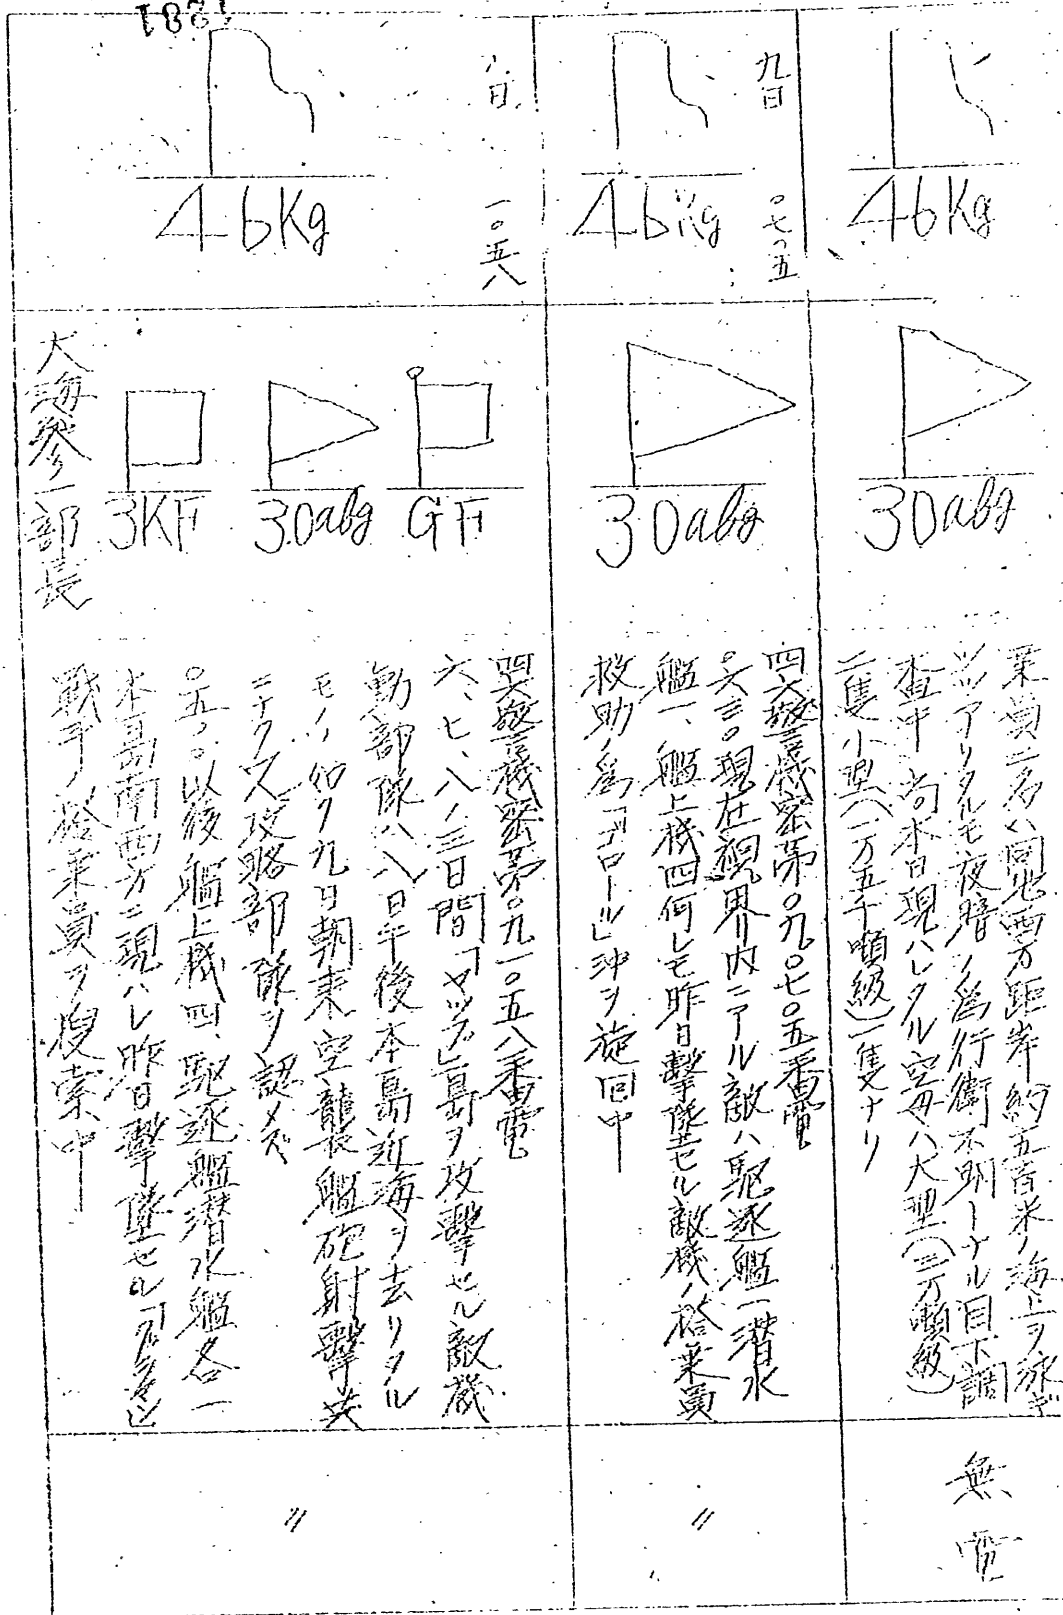 46Kg
30abg
乗員二名ハ同地西方距岸約五百米ノ海上ヲ泳ギ
ツツアリタルモ夜暗ノ為行衛不明トナル目下調
査中尚本日現ハレタル空母ハ大型(三万噸級)
二隻小型(一万五千噸級)一隻ナリ
無電
九日
〇七〇五
46Kg
30abg
四六警機密第〇九〇七〇五番電
〇六三〇現在視界内ニアル敵ハ駆逐艦一潜水
艦一、艦上機四何レモ昨日撃墜セル敵機ノ搭乗員
救助ノ為「コロール」沖ヲ旋回中
〃
日
一〇五八
46Kg
GF
30abg
3KF
大海参一部長
四六警機密第〇九一〇五八番電
六、七、八ノ三日間「ヤップ」島ヲ攻撃セル敵機
動部隊ハ八日午後本島近海ヲ去リタル
モノノ如ク九日朝来空襲艦砲射撃共
ニナク又攻略部隊ヲ認メズ
〇五〇〇以後艦上機四、駆逐艦潜水艦各一
本島南西方ニ現ハレ昨日撃墜セル「グラマン」
戦予ノ搭乗員ヲ捜索中
〃
1881